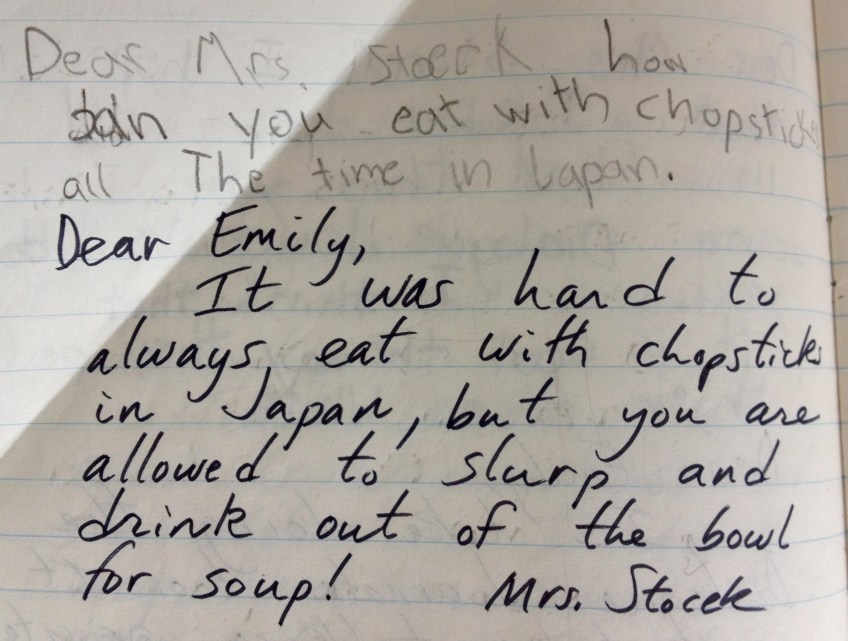 Dear Mrs. Stoeck how
can you eat with chopsticks
all The time in Japan.
Dear Emily,
It was hard to
always eat with chopsticks
in Japan, but you are
allowed to slurp and
drink out of the bowl
for soup! Mrs. Stocek